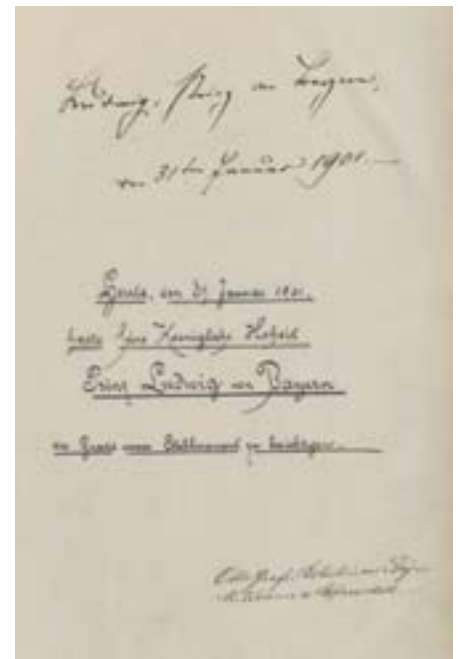 Ludwig, Prinz von Bayern,
am 31ten Januar 1901.
Heute, den 31 Januar 1901,
hatte Seine Königliche Hoheit
Prinz Ludwig von Bayern
die Gnade unser Etablissement zu besichtigen.
Otto Graf